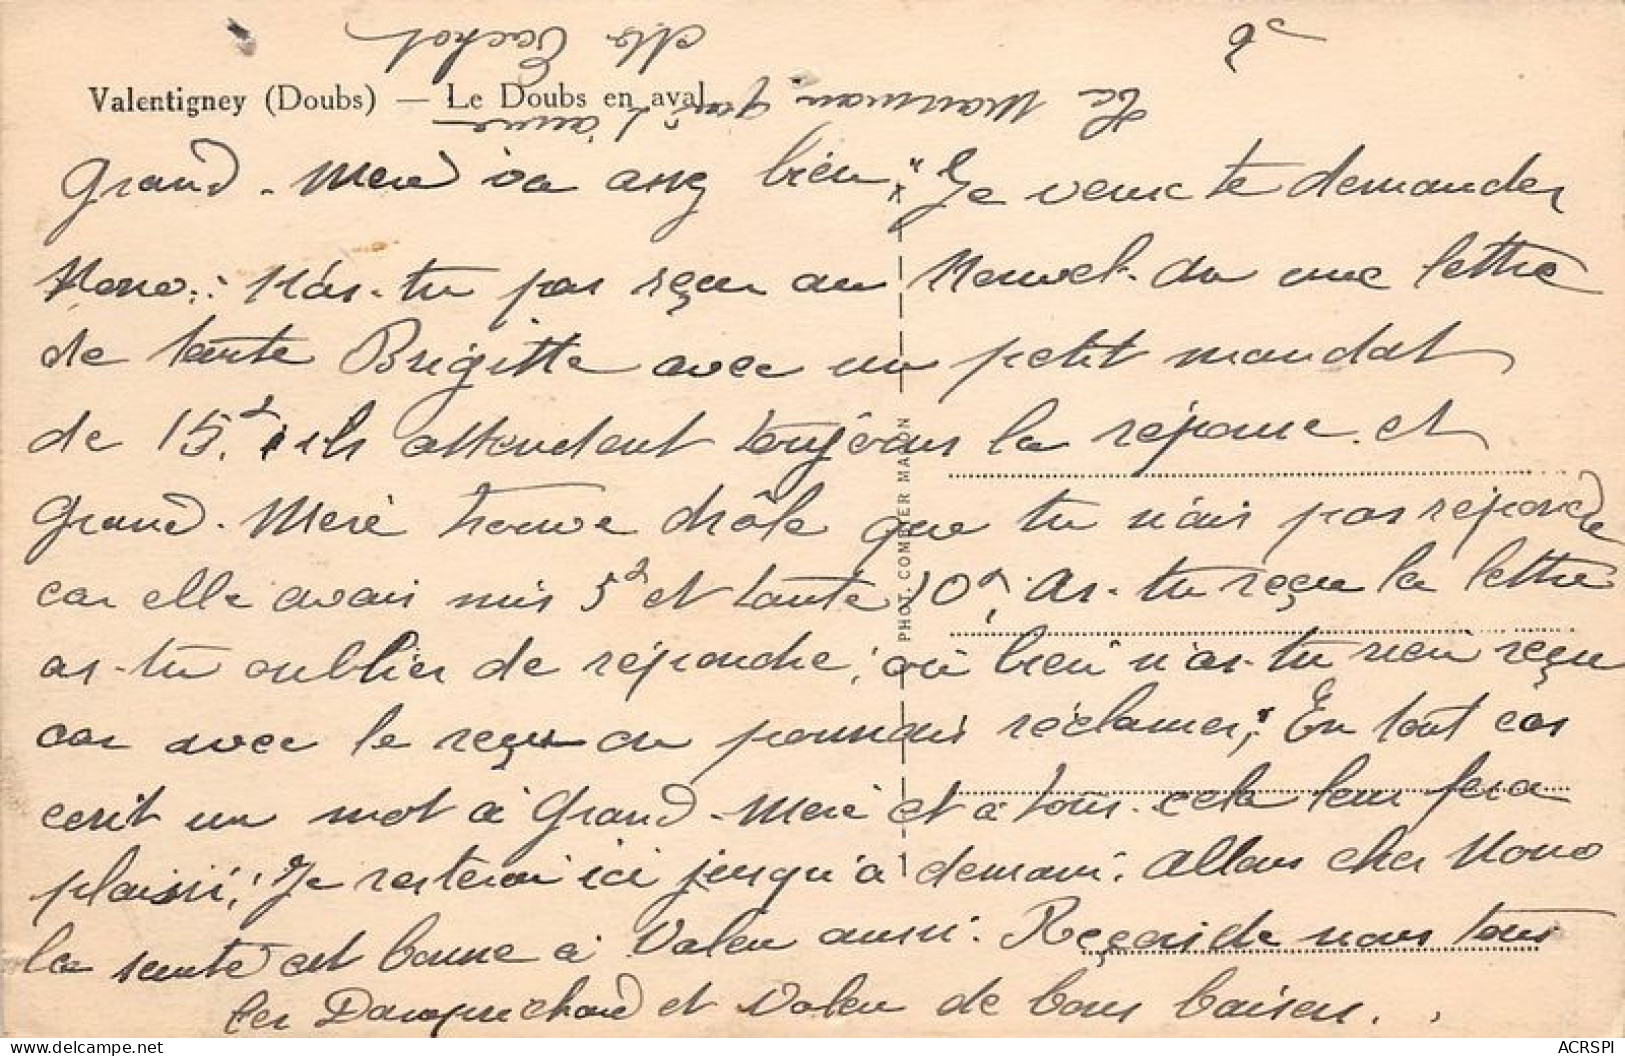 2
Valentigney (Doubs) — Le Doubs en aval
Grand-Mère va assez bien. Je veux te demander
Nono: N'as-tu pas reçu au Nouvel-An une lettre
de tante Brigitte avec un petit mandat
de 15f. ils attendent toujours la réponse. et
Grand-Mère trouve drôle que tu n'ais pas répondu
car elle avais mis 5f et tante 10f. As-tu reçu la lettre
as-tu oublier de répondre, où bien n'as-tu rien reçu
car avec le reçu on pourrais réclamer; En tout cas
ecrit un mot à Grand-Mère et à tous. cela leur fera
plaisir! Je resterai ici jusqu'à demain. Allons cher Nono
la santé est bonne à Valen aussi. Reçois de nous tous
les et Valen de bons baisers. .
PHOT. COMBIER MACON
ta Maman qui t'aime
Cachot
ACRSPI